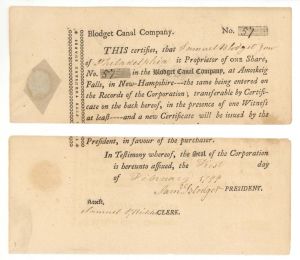 Blodget Canal Company. No. 57
THIS certifies, that Samuel Blodget Junr
of Philadelphia is Proprietor of ONE Share,
No. 57 in the Blodget Canal Company, at Amoskeig
Falls, in New-Hampshire—the same being entered on
the Records of the Corporation; transferable by Certifi-
cate on the back hereof, in the presence of one Witness
at least—and a new Certificate will be issued by the
President, in favour of the purchaser.
In Testimony whereof, the Seal of the Corporation
is hereunto affixed, the First day
of February 1799
Sam. Blodget PRESIDENT.
Attest,
Samuel CLERK.